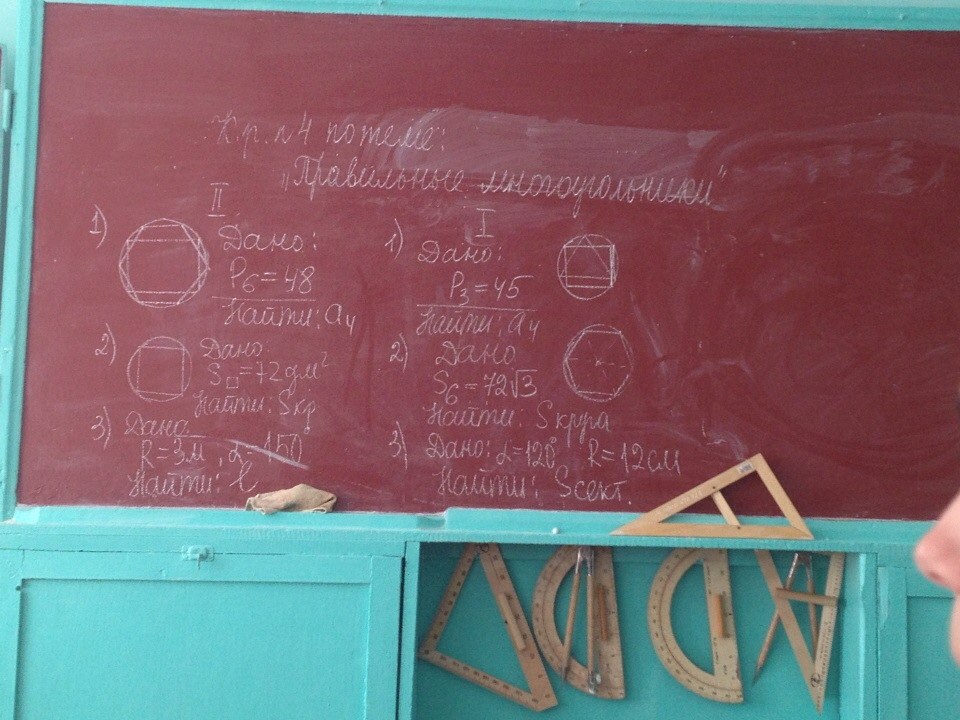 К.р. n 4 по теме:
„Правильные многоугольники"
II
1) Дано:
P₆ = 48
Найти: a₄
2) Дано:
S□ = 72 дм²
Найти: Sкр
3) Дано
R = 3м, α = 150
Найти: l
I
1) Дано:
P₃ = 45
Найти: a₄
2) Дано
S₆ = 72√3
Найти: Sкруга
3) Дано: α = 120° R = 12 см
Найти: Sсект.